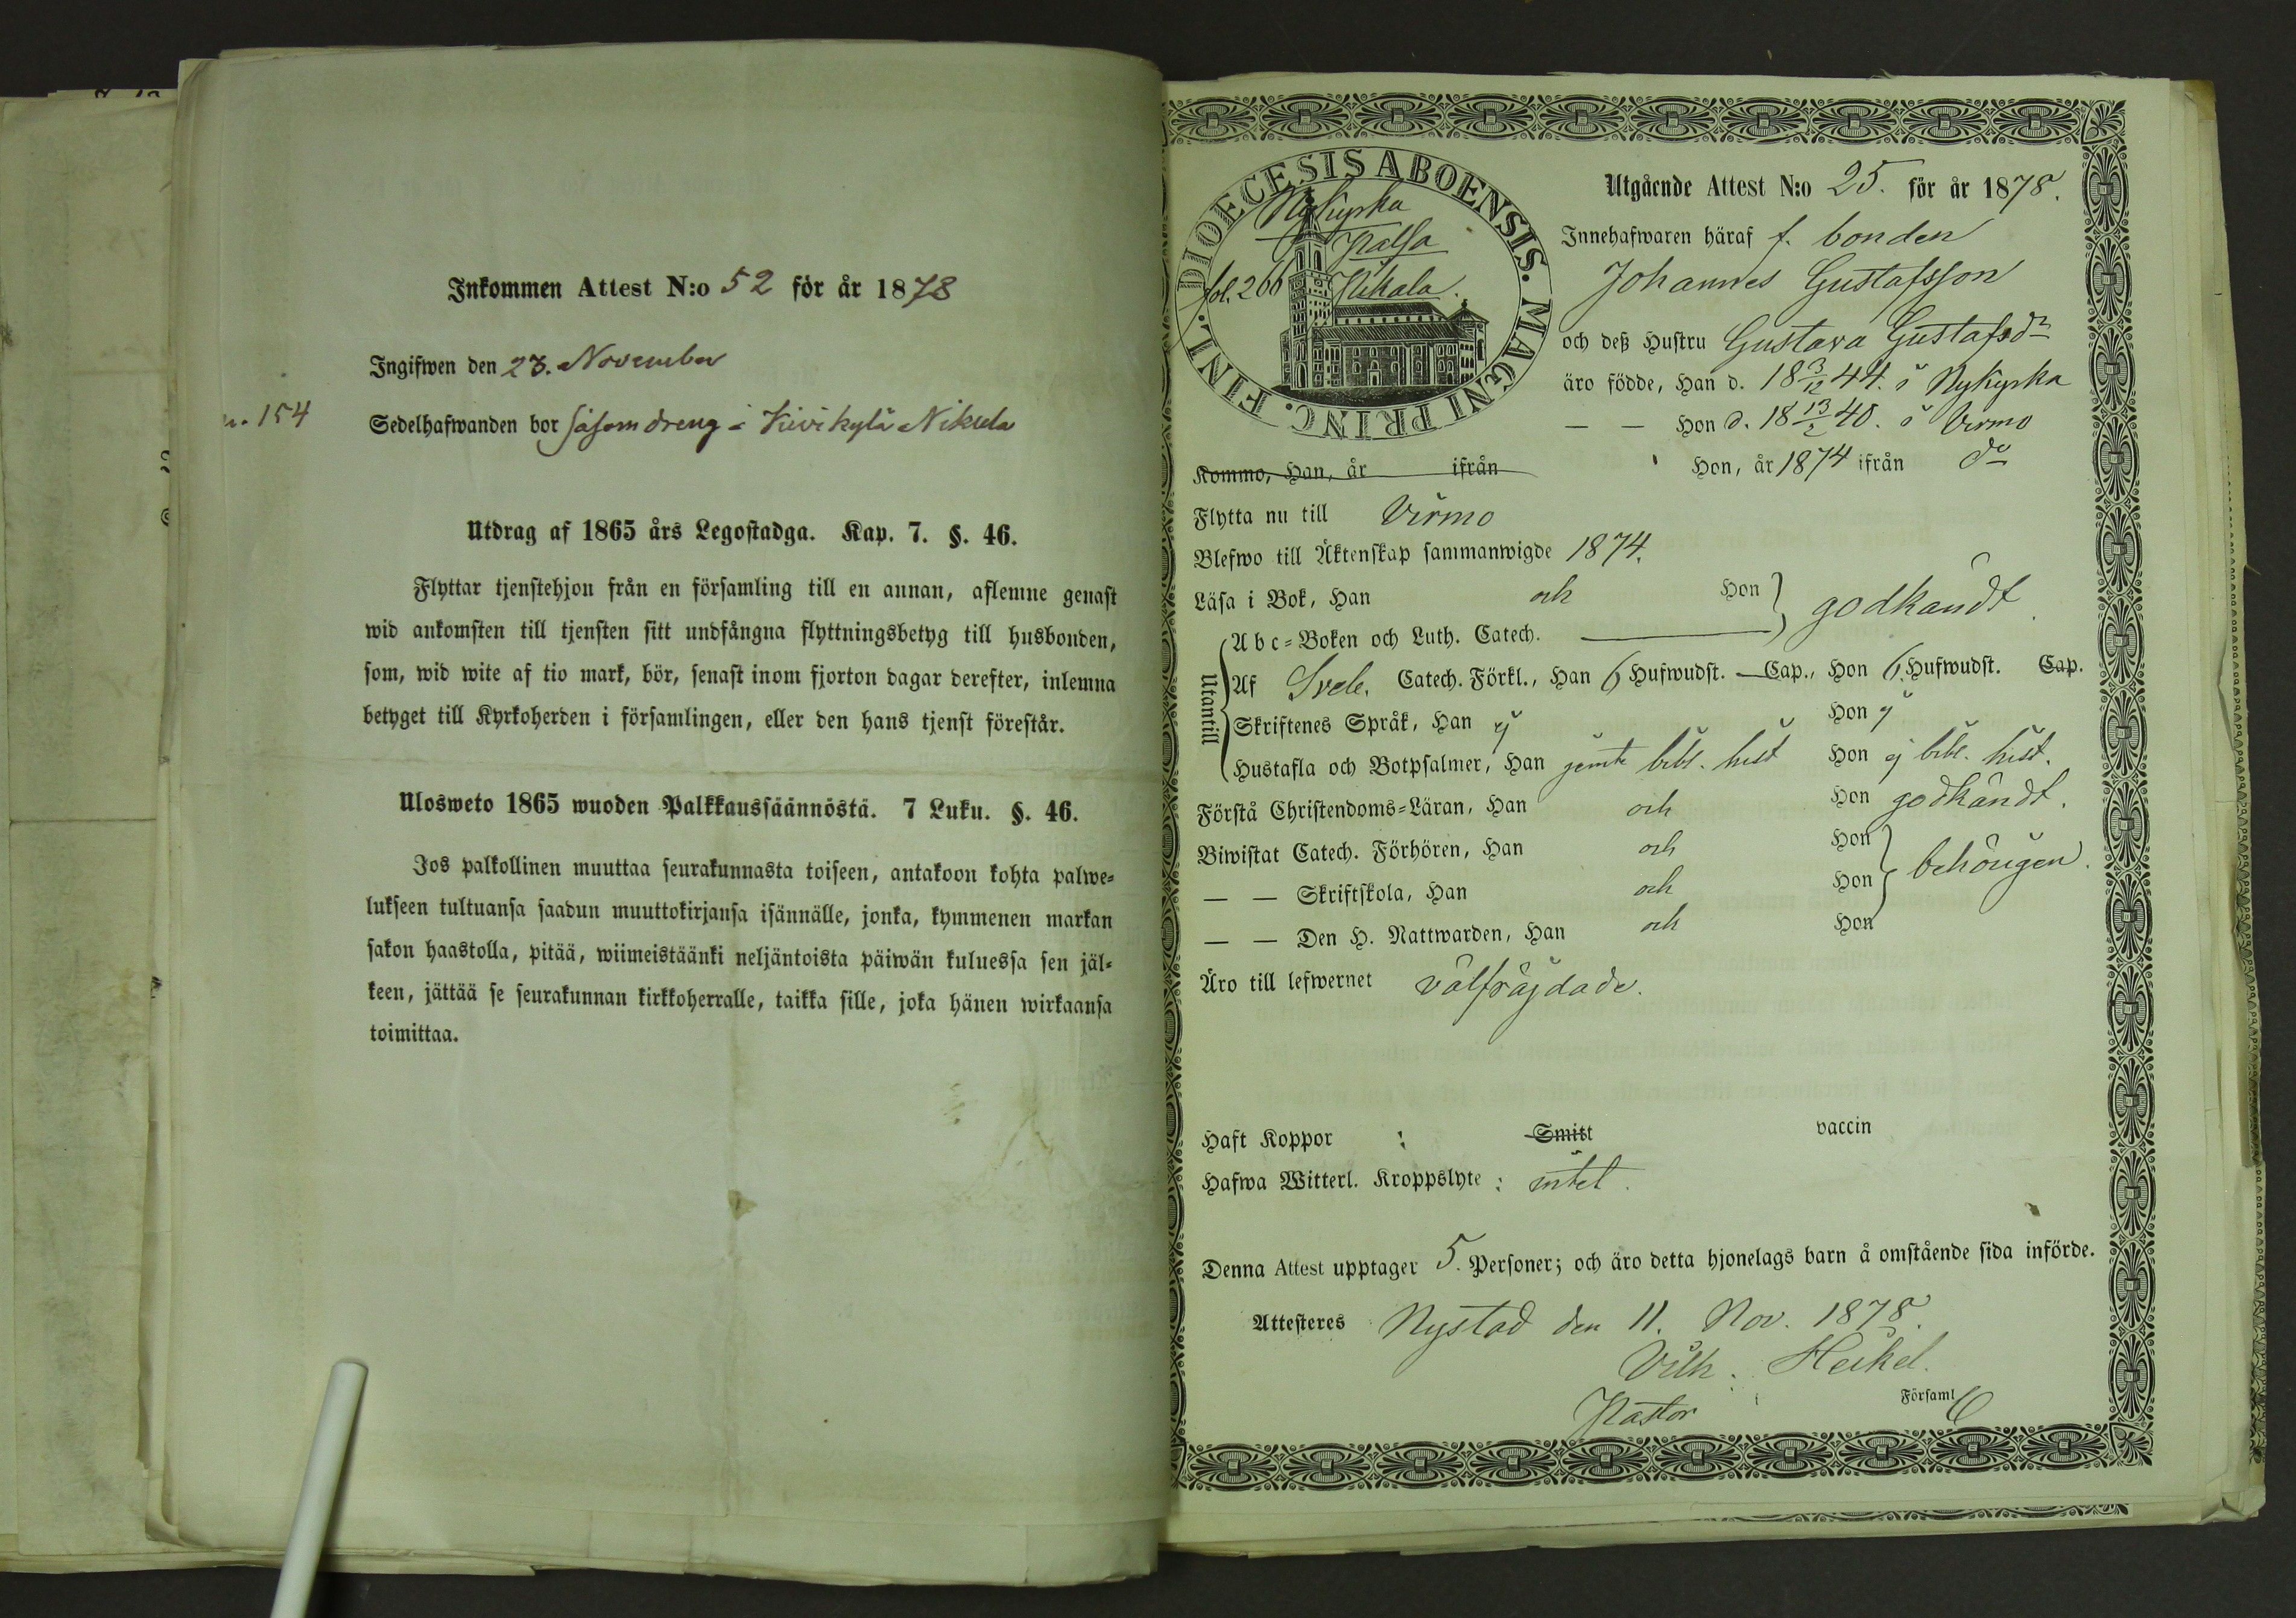 Inkommen Attest N:o 52 för år 1878
Ingifwen den 23. November
154
Sedelhafwanden bor såsom dreng i Kivikylä Nikula
Utdrag af 1865 års Legostadga. Kap. 7. §. 46.
Flyttar tjenstehjon från en församling till en annan, aflemne genast
wid ankomsten till tjensten sitt undfångna flyttningsbetyg till husbonden,
som, wid wite af tio mark, bör, senast inom fjorton dagar derefter, inlemna
betyget till Kyrkoherden i församlingen, eller den hans tjenst förestår.
Ulosweto 1865 wuoden Palkkaussäännöstä. 7 Luku. §. 46.
Jos palkollinen muuttaa seurakunnasta toiseen, antakoon kohta palwe-
lukseen tultuansa saadun muuttokirjansa isännälle, jonka, kymmenen markan
sakon haastolla, pitää, wiimeistäänki neljäntoista päiwän kuluessa sen jäl-
keen, jättää se seurakunnan kirkkoherralle, taikka sille, joka hänen wirkaansa
toimittaa.
DIOECESIS ABOENSIS. MAGNI PRINC. FINL.
Nykyrka
Palsa
fol. 266
Utgående Attest N:o 25. för år 1878.
Innehafwaren häraf f. bonden
Johannes Gustafsson
och deß Hustru Gustava Gustafsdr
äro födde, Han d. 18 3/12 44. i Nykyrka
— — Hon d. 18 13/2 40. i Virmo
Kommo, Han, år ifrån Hon, år 1874 ifrån do
Flytta nu till Virmo
Blefwo till Äktenskap sammanwigde 1874.
Läsa i Bok, Han och Hon godkändt.
Utantill
A b c-Boken och Luth. Catech.
Af Sveb. Catech. Förkl., Han 6 Hufwudst. — Cap., Hon 6. Hufwudst. Cap.
Skriftenes Språk, Han ej Hon ej
Hustafla och Botpsalmer, Han jemte bibl. hist Hon ej bibl. hist.
Förstå Christendoms-Läran, Han och Hon godkändt.
Biwistat Catech. Förhören, Han och Hon
— — Skriftskola, Han och Hon behörigen.
— — Den H. Nattwarden, Han och Hon
Äro till lefwernet välfräjdade.
Haft Koppor Smitt vaccin
Hafwa Witterl. Kroppslyte: intet.
Denna Attest upptager 5. Personer; och äro detta hjonelags barn å omstående sida införde.
Attesteres Nystad den 11. Nov. 1878.
Vilh. Heikel.
Pastor i Församl